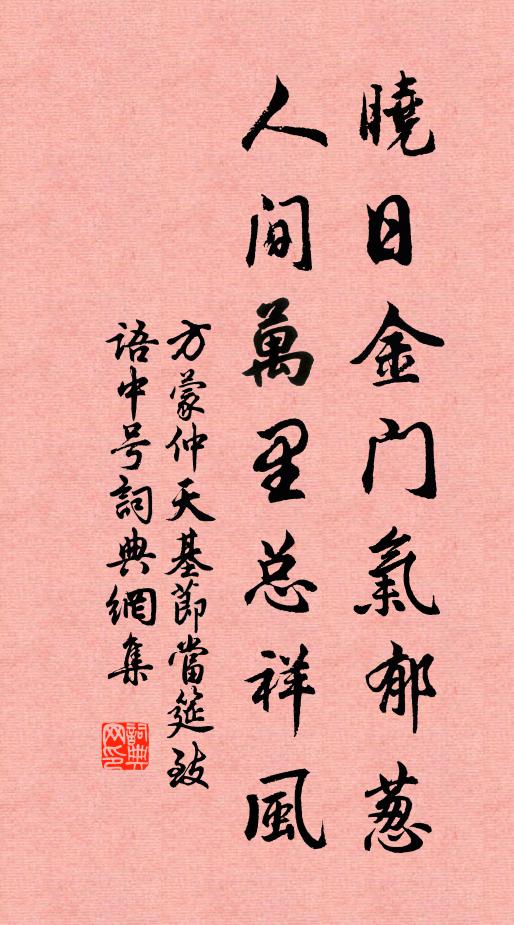 曉日金門氣郁葱
人间萬里总祥風
方蒙仲天基節當筵致
语中号詞典網集
詞典网印